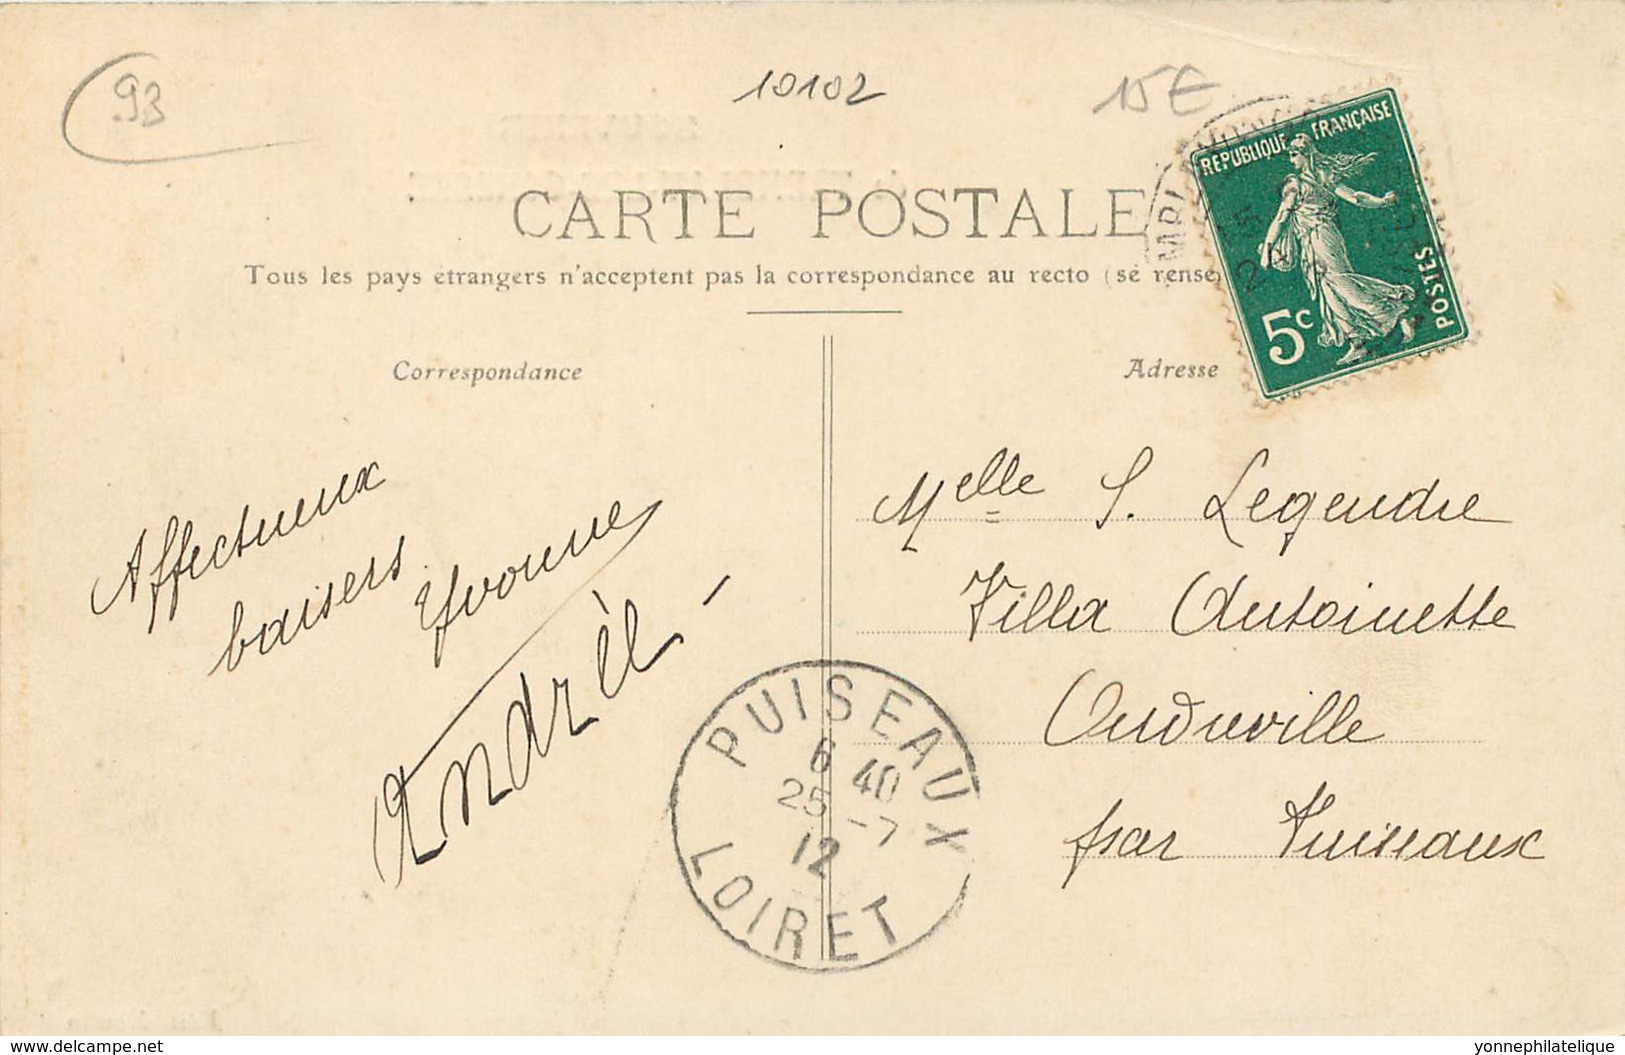 93
10102
15€
CARTE POSTALE
Tous les pays étrangers n'acceptent pas la correspondance au recto (se rense
REPUBLIQUE FRANÇAISE
POSTES
5c
Correspondance
Adresse
Affectueux
baisers
Yvonne
Melle S. Legendre
Villa Antoinette
Ondreville
par Puiseaux
PUISEAUX
6 40
25 -7
12
LOIRET
www.delcampe.net
yonnephilatelique